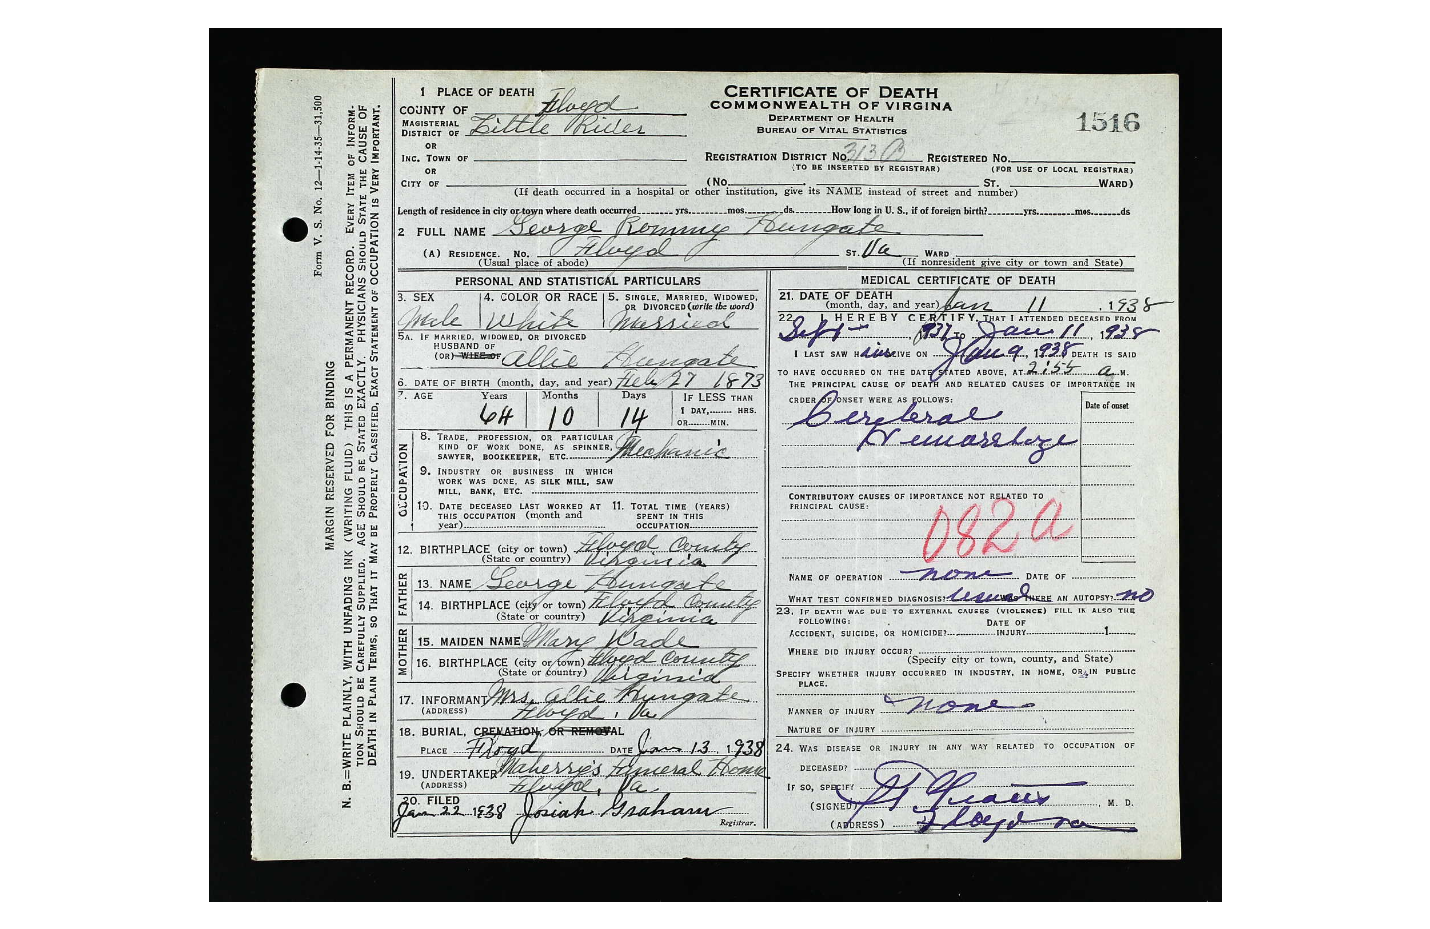 Form V. S. No. 12—1-14-35—31,500
MARGIN RESERVED FOR BINDING
N. B.=WRITE PLAINLY, WITH UNFADING INK (WRITING FLUID) THIS IS A PERMANENT RECORD. EVERY ITEM OF INFORM-
TION SHOULD BE CAREFULLY SUPPLIED. AGE SHOULD BE STATED EXACTLY. PHYSICIANS SHOULD STATE THE CAUSE OF
DEATH IN PLAIN TERMS, SO THAT IT MAY BE PROPERLY CLASSIFIED, EXACT STATEMENT OF OCCUPATION IS VERY IMPORTANT.
1 PLACE OF DEATH
COUNTY OF Floyd
MAGISTERIAL
DISTRICT OF Little River
OR
INC. TOWN OF
OR
CITY OF
CERTIFICATE OF DEATH
COMMONWEALTH OF VIRGINA
DEPARTMENT OF HEALTH
BUREAU OF VITAL STATISTICS
1516
REGISTRATION DISTRICT No. 313 B REGISTERED No.
(TO BE INSERTED BY REGISTRAR) (FOR USE OF LOCAL REGISTRAR)
(No. ST. WARD)
(If death occurred in a hospital or other institution, give its NAME instead of street and number)
Length of residence in city or town where death occurred yrs. mos. ds. How long in U. S., if of foreign birth? yrs. mos. ds
2 FULL NAME George Rommy Hungate
(A) RESIDENCE. No. Floyd ST. Va WARD
(Usual place of abode) (If nonresident give city or town and State)
PERSONAL AND STATISTICAL PARTICULARS
3. SEX 4. COLOR OR RACE 5. SINGLE, MARRIED, WIDOWED,
OR DIVORCED (write the word)
Male White Married
5A. IF MARRIED, WIDOWED, OR DIVORCED
HUSBAND OF
(OR) WIFE OF Allie Hungate
6. DATE OF BIRTH (month, day, and year) Feb 27 1873
7. AGE Years Months Days IF LESS THAN
1 DAY, HRS.
OR MIN.
64 10 14
OCCUPATION
8. TRADE, PROFESSION, OR PARTICULAR
KIND OF WORK DONE, AS SPINNER,
SAWYER, BOOKKEEPER, ETC. Mechanic
9. INDUSTRY OR BUSINESS IN WHICH
WORK WAS DONE, AS SILK MILL, SAW
MILL, BANK, ETC.
10. DATE DECEASED LAST WORKED AT 11. TOTAL TIME (YEARS)
THIS OCCUPATION (month and SPENT IN THIS
year) OCCUPATION
12. BIRTHPLACE (city or town) Floyd County
(State or country) Virginia
FATHER
13. NAME George Hungate
14. BIRTHPLACE (city or town) Floyd County
(State or country) Virginia
MOTHER
15. MAIDEN NAME Mary Wade
16. BIRTHPLACE (city or town) Floyd County
(State or country) Virginia
17. INFORMANT Mrs. Allie Hungate
(ADDRESS) Floyd, Va.
18. BURIAL, CREMATION, OR REMOVAL
PLACE Floyd DATE Jan 13, 1938
19. UNDERTAKER Maberry's Funeral Home
(ADDRESS) Floyd, Va.
20. FILED
Jan 22 1938 Josiah Graham
Registrar.
MEDICAL CERTIFICATE OF DEATH
21. DATE OF DEATH
(month, day, and year) Jan 11, 1938
22. I HEREBY CERTIFY, THAT I ATTENDED DECEASED FROM
Sept 1937 TO Jan 11, 1938
I LAST SAW H ALIVE ON Jan 9, 1938 DEATH IS SAID
TO HAVE OCCURRED ON THE DATE STATED ABOVE, AT 2:55 a M.
THE PRINCIPAL CAUSE OF DEATH AND RELATED CAUSES OF IMPORTANCE IN
ORDER OF ONSET WERE AS FOLLOWS:
Date of onset
Cerebral
Hemorrhage
CONTRIBUTORY CAUSES OF IMPORTANCE NOT RELATED TO
PRINCIPAL CAUSE:
082 a
NAME OF OPERATION none DATE OF
WHAT TEST CONFIRMED DIAGNOSIS? usual WAS THERE AN AUTOPSY? no
23. IF DEATH WAS DUE TO EXTERNAL CAUSES (VIOLENCE) FILL IN ALSO THE
FOLLOWING: DATE OF
ACCIDENT, SUICIDE, OR HOMICIDE? INJURY 1
WHERE DID INJURY OCCUR?
(Specify city or town, county, and State)
SPECIFY WHETHER INJURY OCCURRED IN INDUSTRY, IN HOME, OR IN PUBLIC
PLACE.
MANNER OF INJURY none
NATURE OF INJURY
24. WAS DISEASE OR INJURY IN ANY WAY RELATED TO OCCUPATION OF
DECEASED?
IF SO, SPECIFY
(SIGNED) M. D.
(ADDRESS) Floyd va